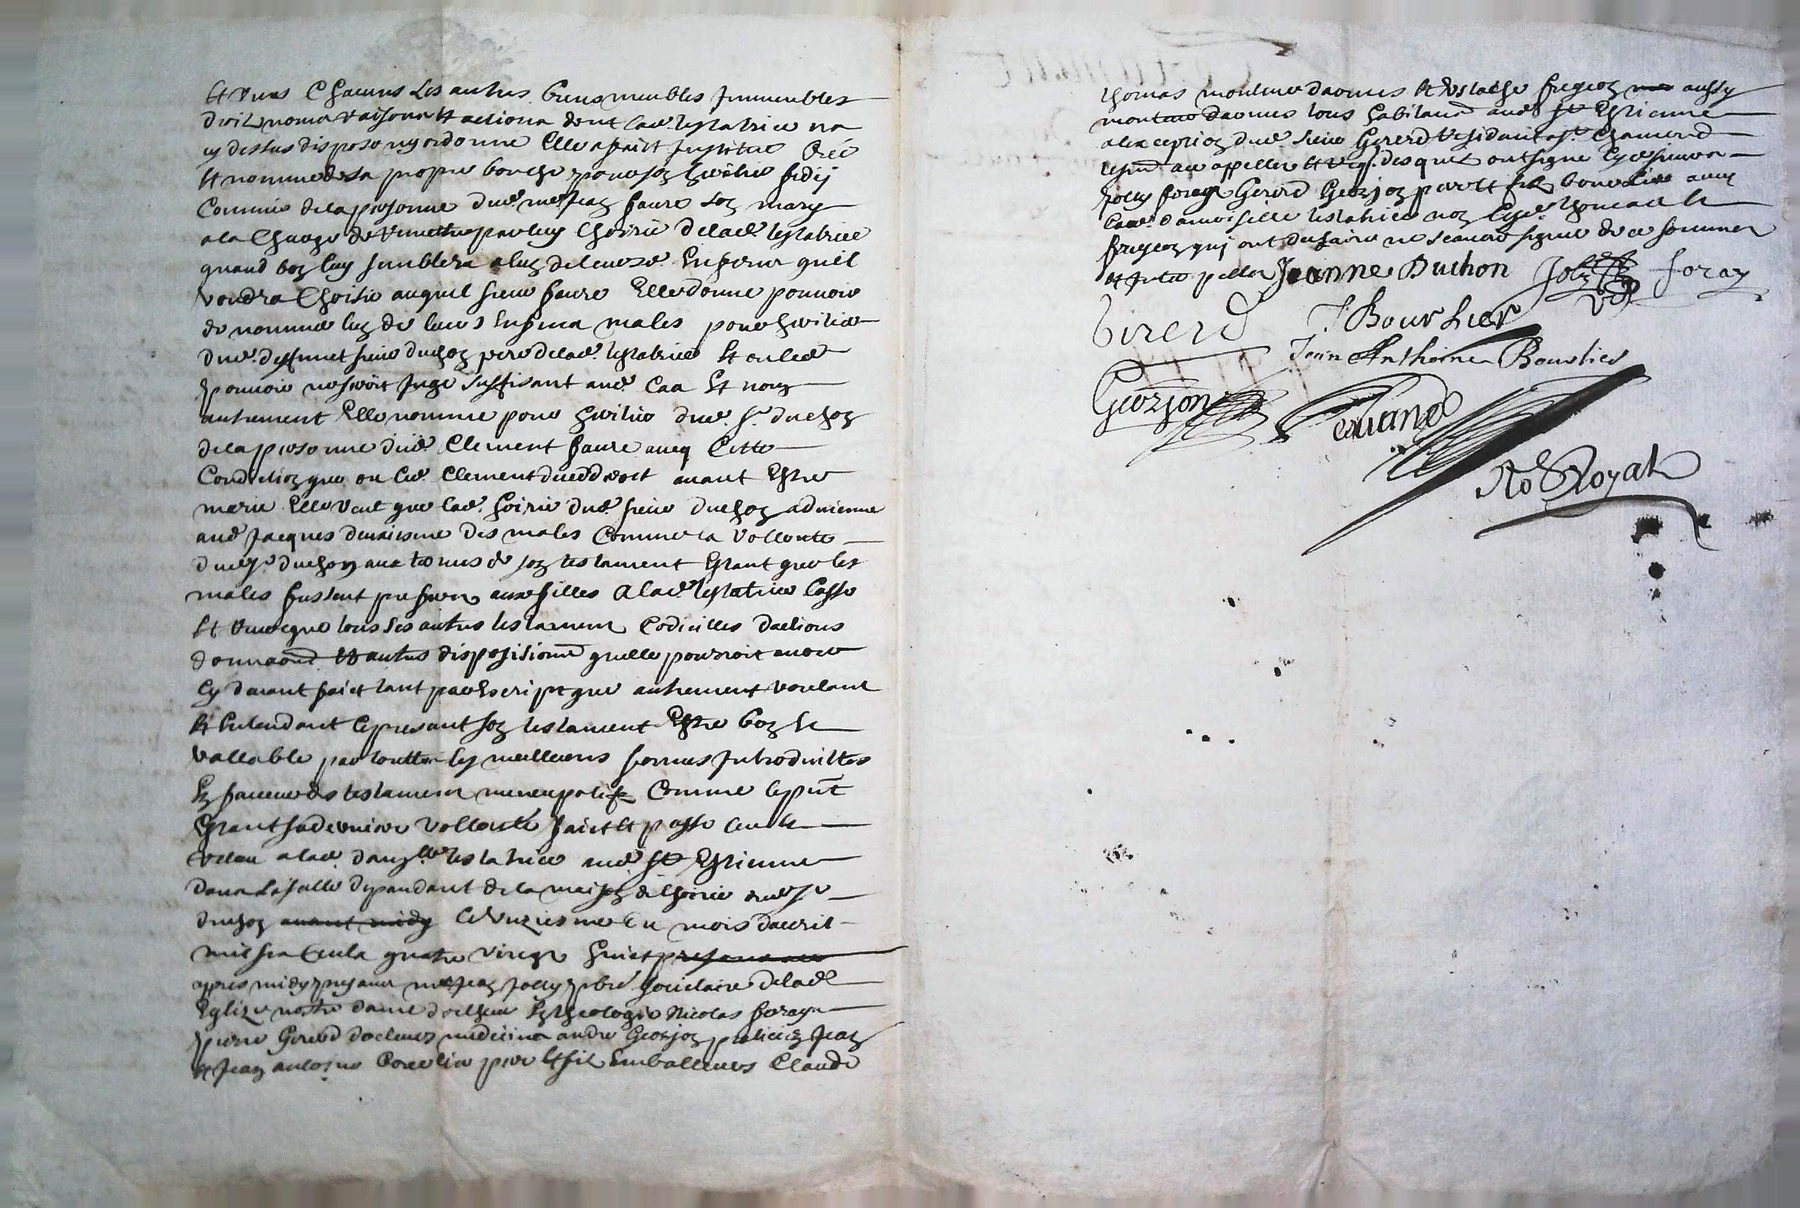 Et Tous Chacuns Les autres biens meubles Immeubles
droits noms raisons et actions dont lad. testatrice na
cy dessus dispose ny ordonne Elle a faict Institue Cree
Et nomme de sa propre bouche pour son heritier fidei
Commis de la personne dud. me Jean faure son mary
a la Charge de remettre par luy lhoirie de lad. testatrice
quand bon luy semblera a lun de leurs d. Enfans quil
voudra Choisir auquel sieur faure Elle donne pouvoir
de nommer lun de leurs Enfans males pour heritier
dud. deffunct sieur duchon pere de lad. testatrice Et ou led.
pouvoir ne seroit Juge suffisant aud. Cas Et non
autrement Elle nomme pour heritier dud. Sr. duchon
de la personne dud. Clement faure avec Cette
Condition que ou led. Clement avant Estre
marie Elle veut que lad. hoirie dud. sieur duchon advienne
aud. Jacques deuxiesme des males Comme la vollonte
dud. Sr. duchon aux termes de son testament Estant que les
males fussent preferes aux filles a lad. testatrice Casse
Et revocque tous ses autres testamens Codicilles
Et autres dispositions quelle pourroit avoir
Cy devant faict tant par Escript que autrement voulant
Et Entendant le present son testament Estre bon Et
vallable par touttes les meilleures formes Introduittes
En faveur des testamens nuncupatifs Comme le pnt
Estant sa derniere vollonte faict Et passe leu Et
releu a lad. damlle testatrice aud. St Estienne
dans La salle dependant de la maison de lhoirie dud. Sr
duchon avant midy le unziesme du mois davril
mil six Cents quatre vingt huict
apres midy presans me Jean Jolly pbre societaire de lad.
Eglize nostre dame docteur En theologie Nicolas foray
pierre Gererd docteur medicin andre Georjon praticien Jean
Et Jean antoine Bourlier pere Et fil Emballeurs Claude
thomas monteur darmes Et Estache frejeon aussy
monteur darmes tous habitans aud. St Estienne
a lexception dud. sieur Gererd residant a St. Chamond
tesm. a ce appelles Et req. desquels ont signe
Jolly foray Gererd Georjon pere Et fil bourlier avec
lad. damoiselle testatrice non led. thomas Et
frejeon qui ont desclaire ne scavoir signer de ce sommes
Et Interpelles Jeanne Duchon Jolly foray
Girerd J Bourlier
Jean Anthoine Bourlier
Georjon
No Royal